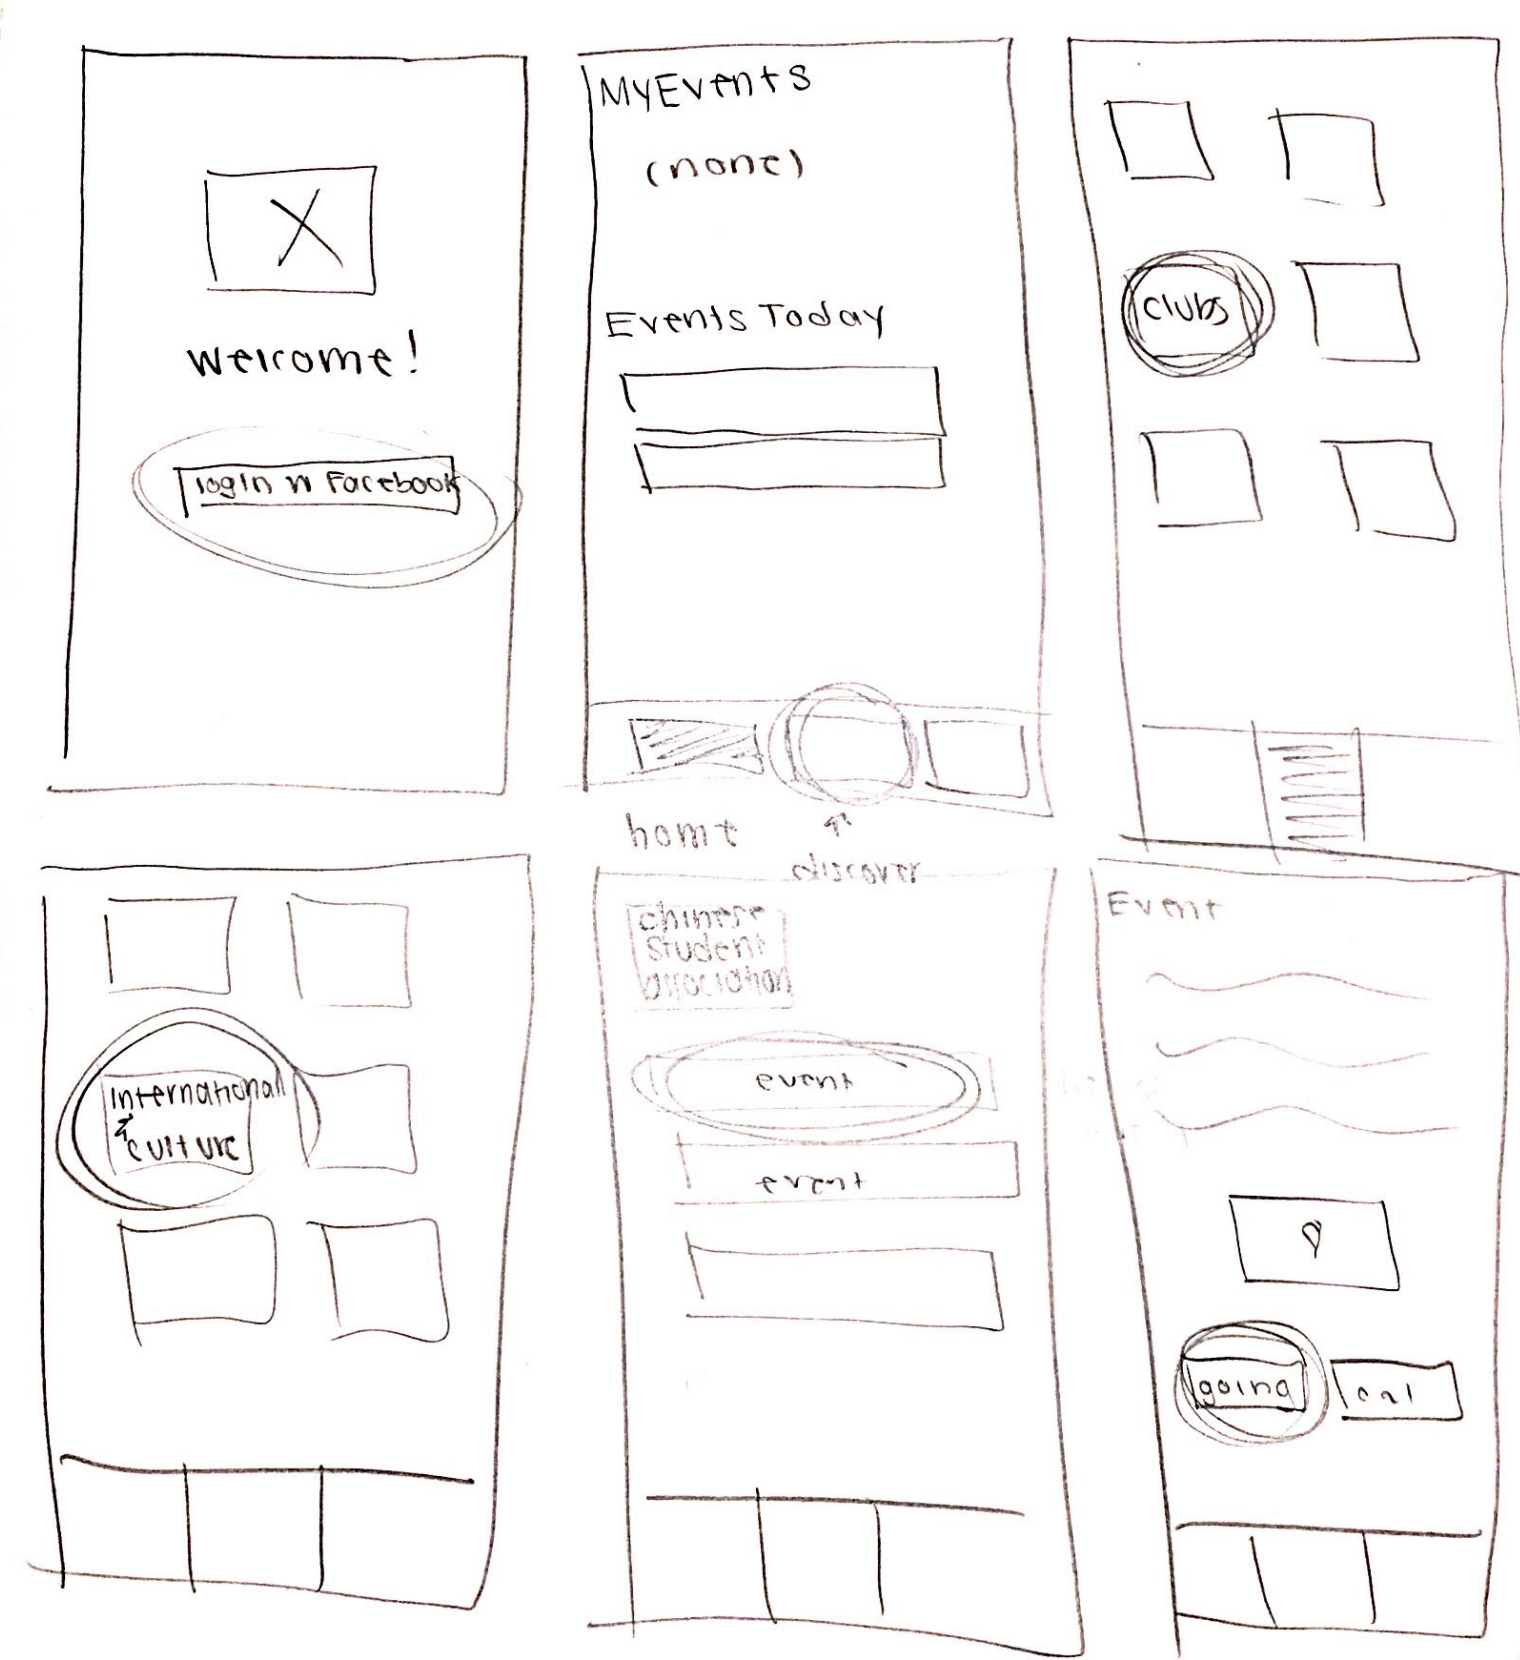 Welcome!
login w Facebook
MyEvents
(none)
Events Today
home
discover
clubs
International
& culture
chinese
student
association
event
event
Event
going
cal